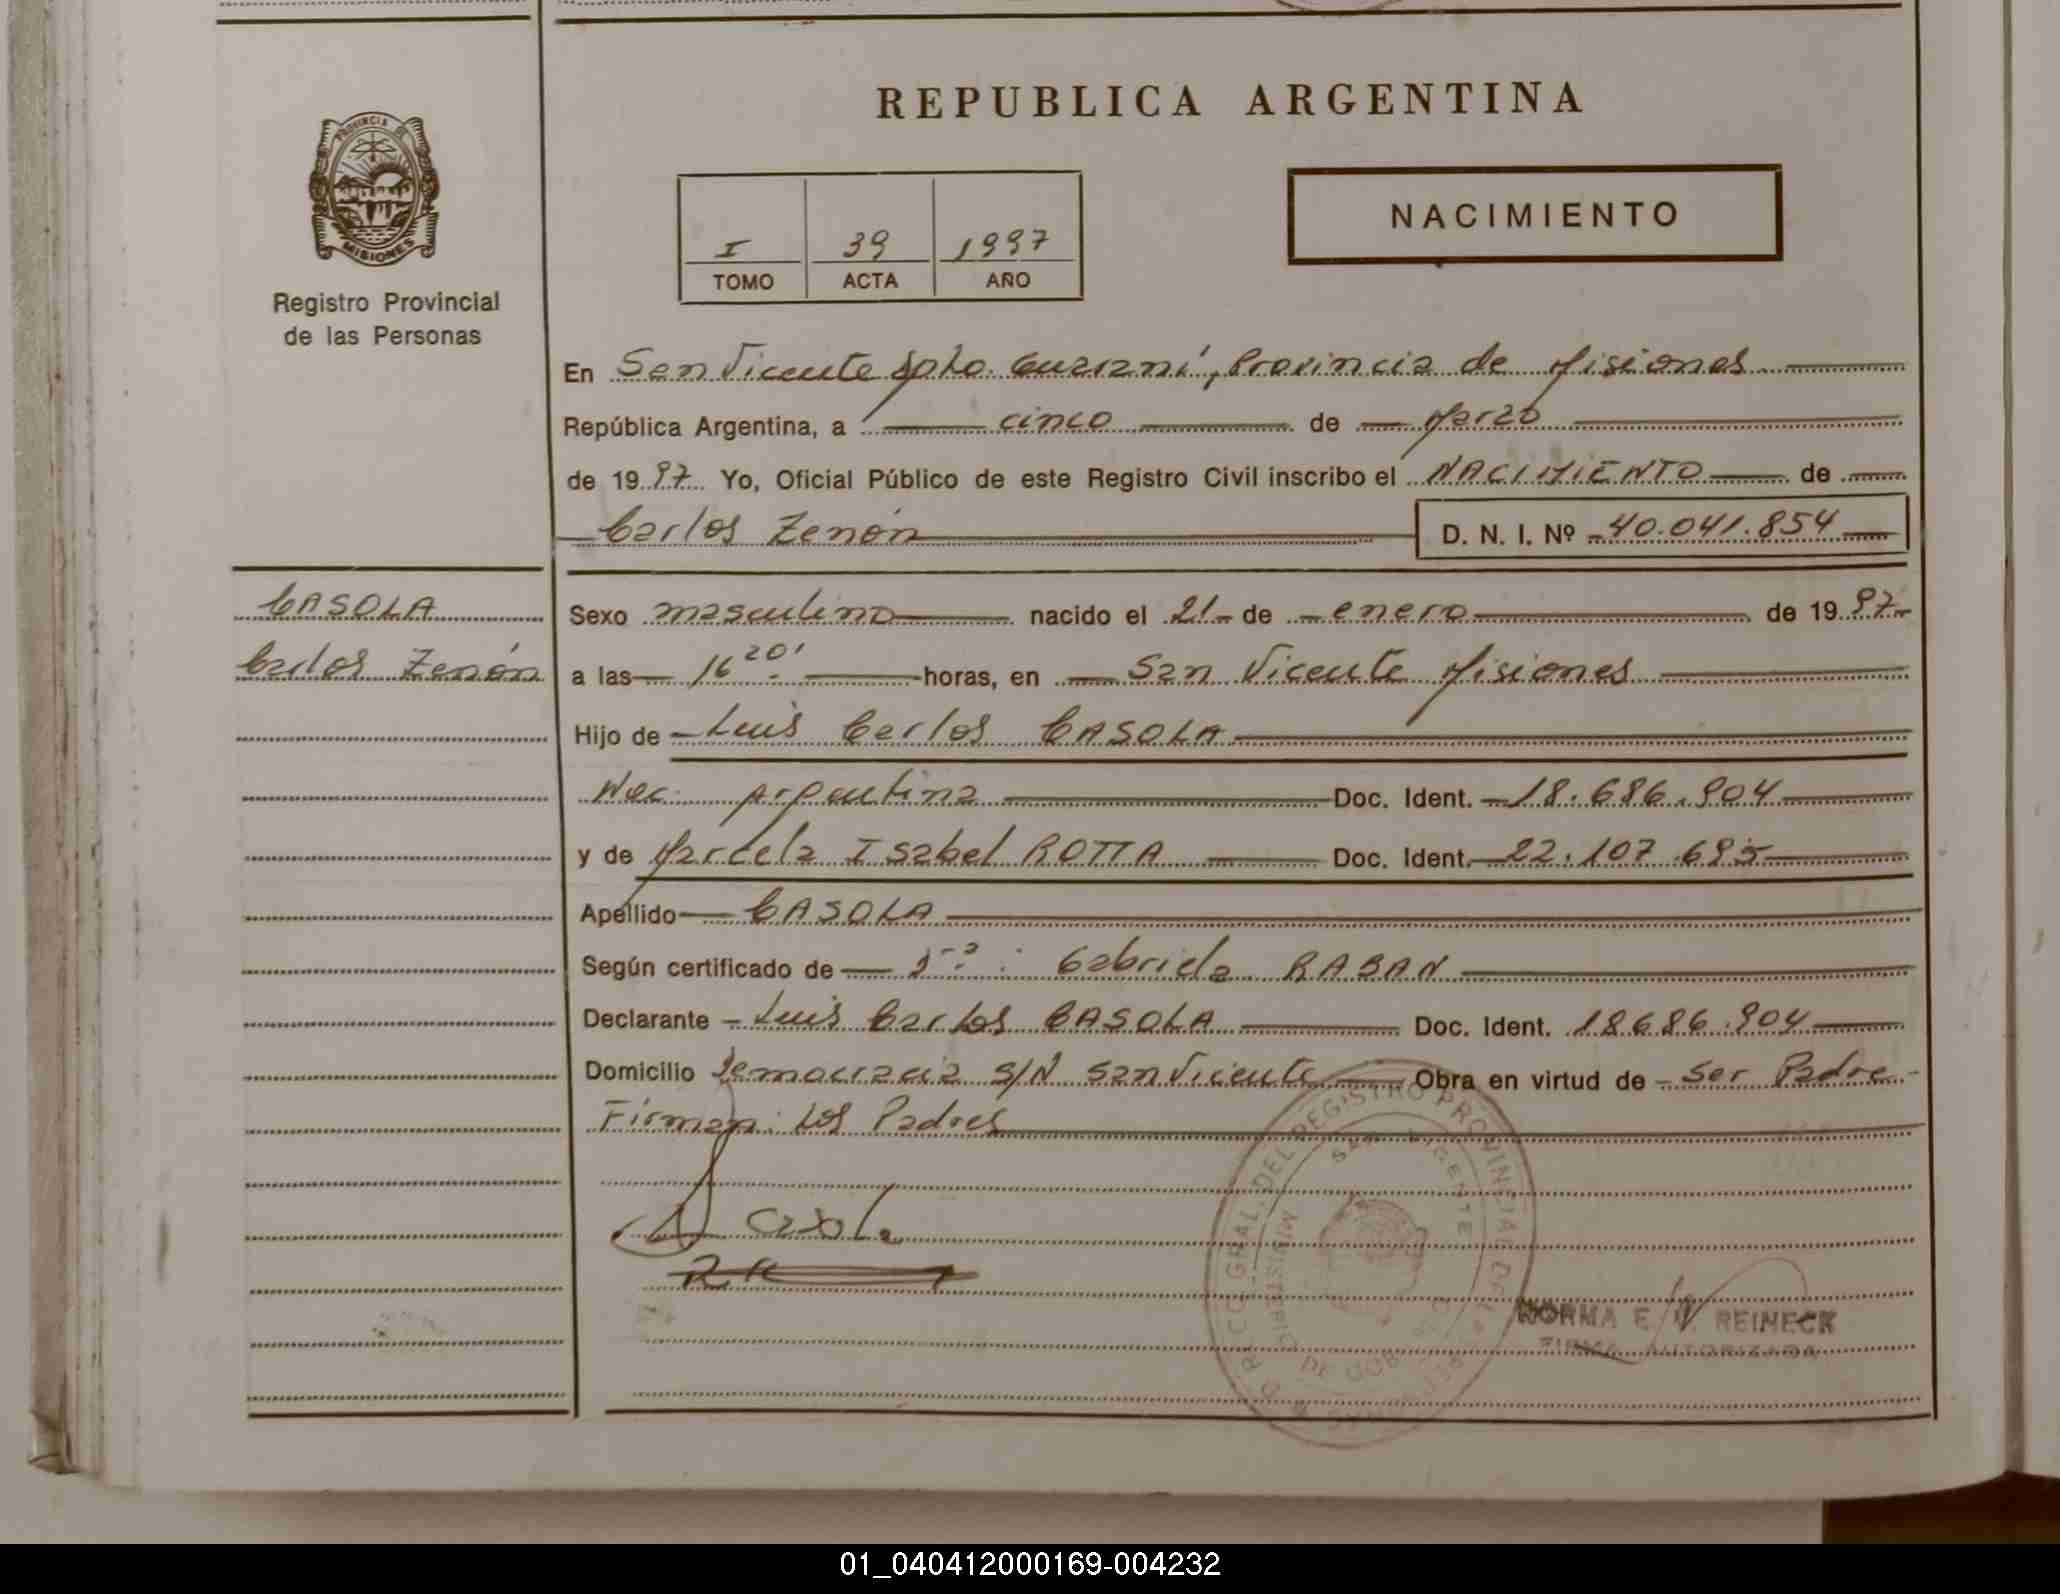 REPUBLICA ARGENTINA
PROVINCIA DE
MISIONES
Registro Provincial
de las Personas
I 39 1997
TOMO ACTA AÑO
NACIMIENTO
En San Vicente Dpto. Guaraní, Provincia de Misiones
República Argentina, a cinco de Marzo
de 1997 Yo, Oficial Público de este Registro Civil inscribo el NACIMIENTO de
Carlos Zenón D. N. I. Nº 40.041.854
CASOLA
Carlos Zenón
Sexo masculino nacido el 21 de enero de 1997
a las 16 20' horas, en San Vicente Misiones
Hijo de Luis Carlos CASOLA
Nac. Argentina Doc. Ident. 18.686.904
y de Marcela Isabel ROTTA Doc. Ident. 22.107.695
Apellido CASOLA
Según certificado de Gabriela RABAN
Declarante Luis Carlos CASOLA Doc. Ident. 18686.904
Domicilio Democracia S/N San Vicente Obra en virtud de ser Padre
Firman: Los Padres
Casola
GRAL. DEL REGISTRO PROVINCIAL DE LAS PERSONAS
SAN VICENTE
MINISTERIO DE GOB
NORMA E. REINECK
FIRMA AUTORIZADA
01_040412000169-004232